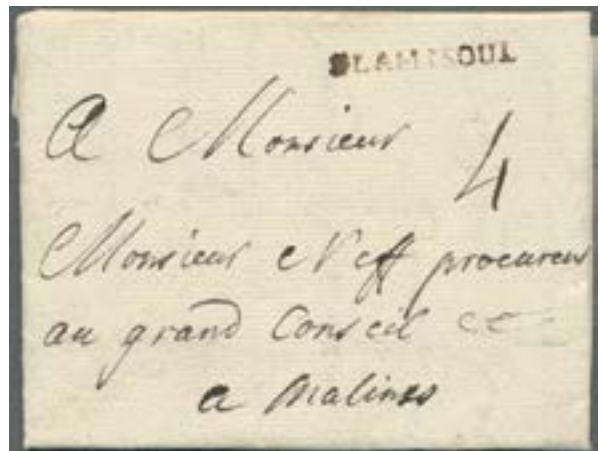 FLAMISOUL
A Monsieur
4
Monsieur Neff procureur
au grand Conseil
a Malines